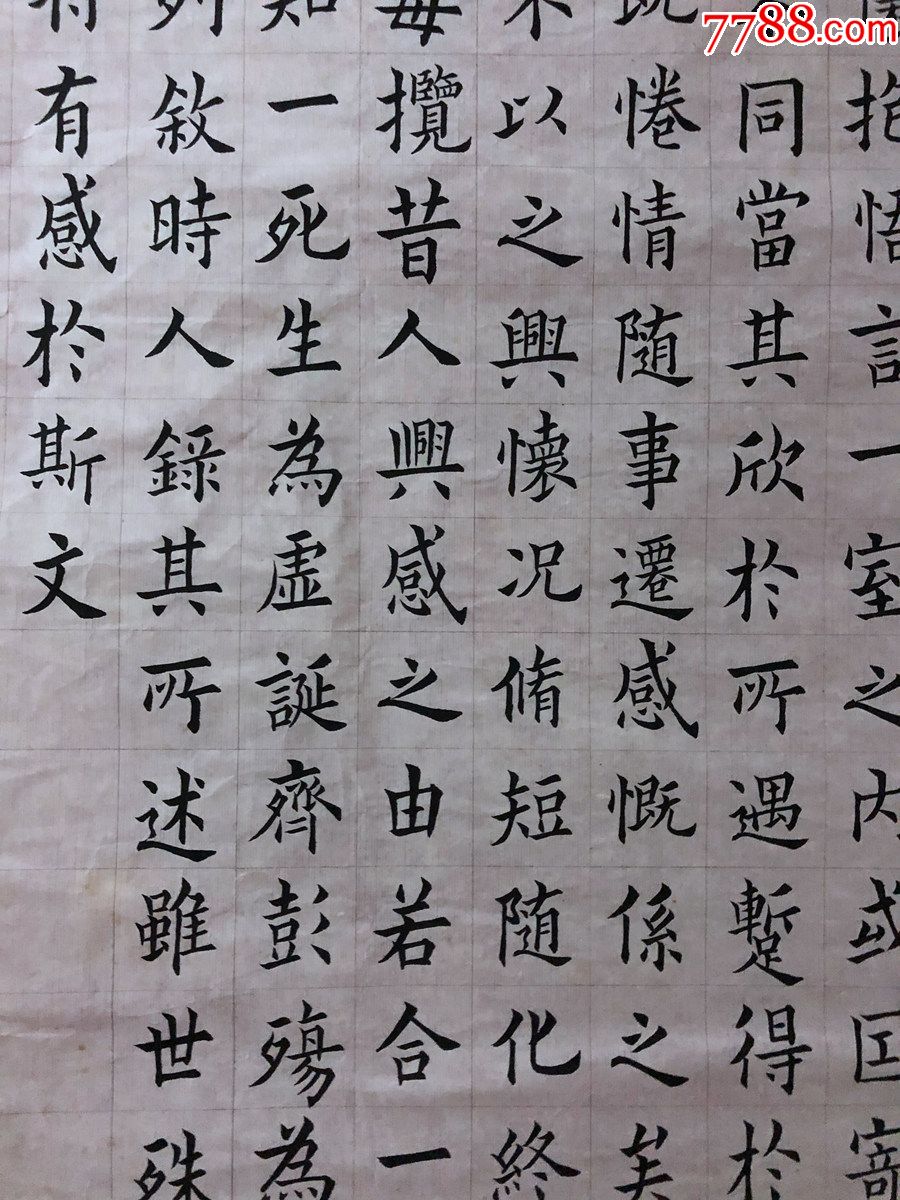 7788.com
抱悟言一室之内或因寄
同當其欣於所遇蹔得於
既惓情隨事遷感慨係之矣
不以之興懷況脩短隨化終
每攬昔人興感之由若合一
知一死生為虛誕齊彭殤為
列敘時人錄其所述雖世殊
有感於斯文